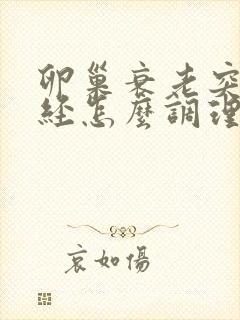 卵巢衰老突
经怎麼調理
哀如傷